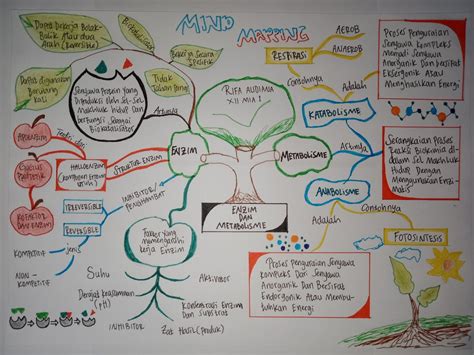 MIND
MAPPING
Dapat Bekerja Bolak-
Balik Atau dua
Arah (Reversible)
Biokatalisator
Bekerja Secara
Spesifik
Dapat digunakan
Berulang
kali
Tidak Tahan
Panas
Senyawa Protein yang
diproduksi oleh sel-sel
Makhluk hidup dan
berfungsi Sebagai
Biokatalisator
Artinya
RIFA AUDIMIA
XII MIA 1
RESPIRASI
AEROB
ANAEROB
Contohnya
Adalah
Proses Penguraian
Senyawa Kompleks
Menjadi Senyawa
Anorganik dan bersifat
Eksergonik Atau
Menghasilkan Energi
KATABOLISME
Artinya
Serangkaian Proses
Reaksi Biokimia di
dalam sel Makhluk
Hidup Dengan
Menggunakan Enzi-
matis
APOENZIM
Terdiri dari
HALOENZIM
STRUKTUR ENZIM
ENZIM
METABOLISME
ANABOLISME
Contohnya
Adalah
FOTOSINTESIS
GUGUS
PROSTETIK
INHIBITOR/
PENGHAMBAT
IRREVERSIBLE
REVERSIBLE
KOFAKTOR
DAN ENZIM
jenis
Kompetitif
NON-
KOMPETITIF
ENZIM
DAN
METABOLISME
Faktor yang
memengaruhi
kerja Enzim
Suhu
Aktivator
Derajat keasaman
(pH)
Konsentrasi Enzim
Dan Substrat
INHIBITOR
Zat Hasil (Produk)
Proses Penguraian Senyawa
Kompleks Dari Senyawa
Anorganik Dan Bersifat
Endergonik Atau Membu-
tuhkan Energi